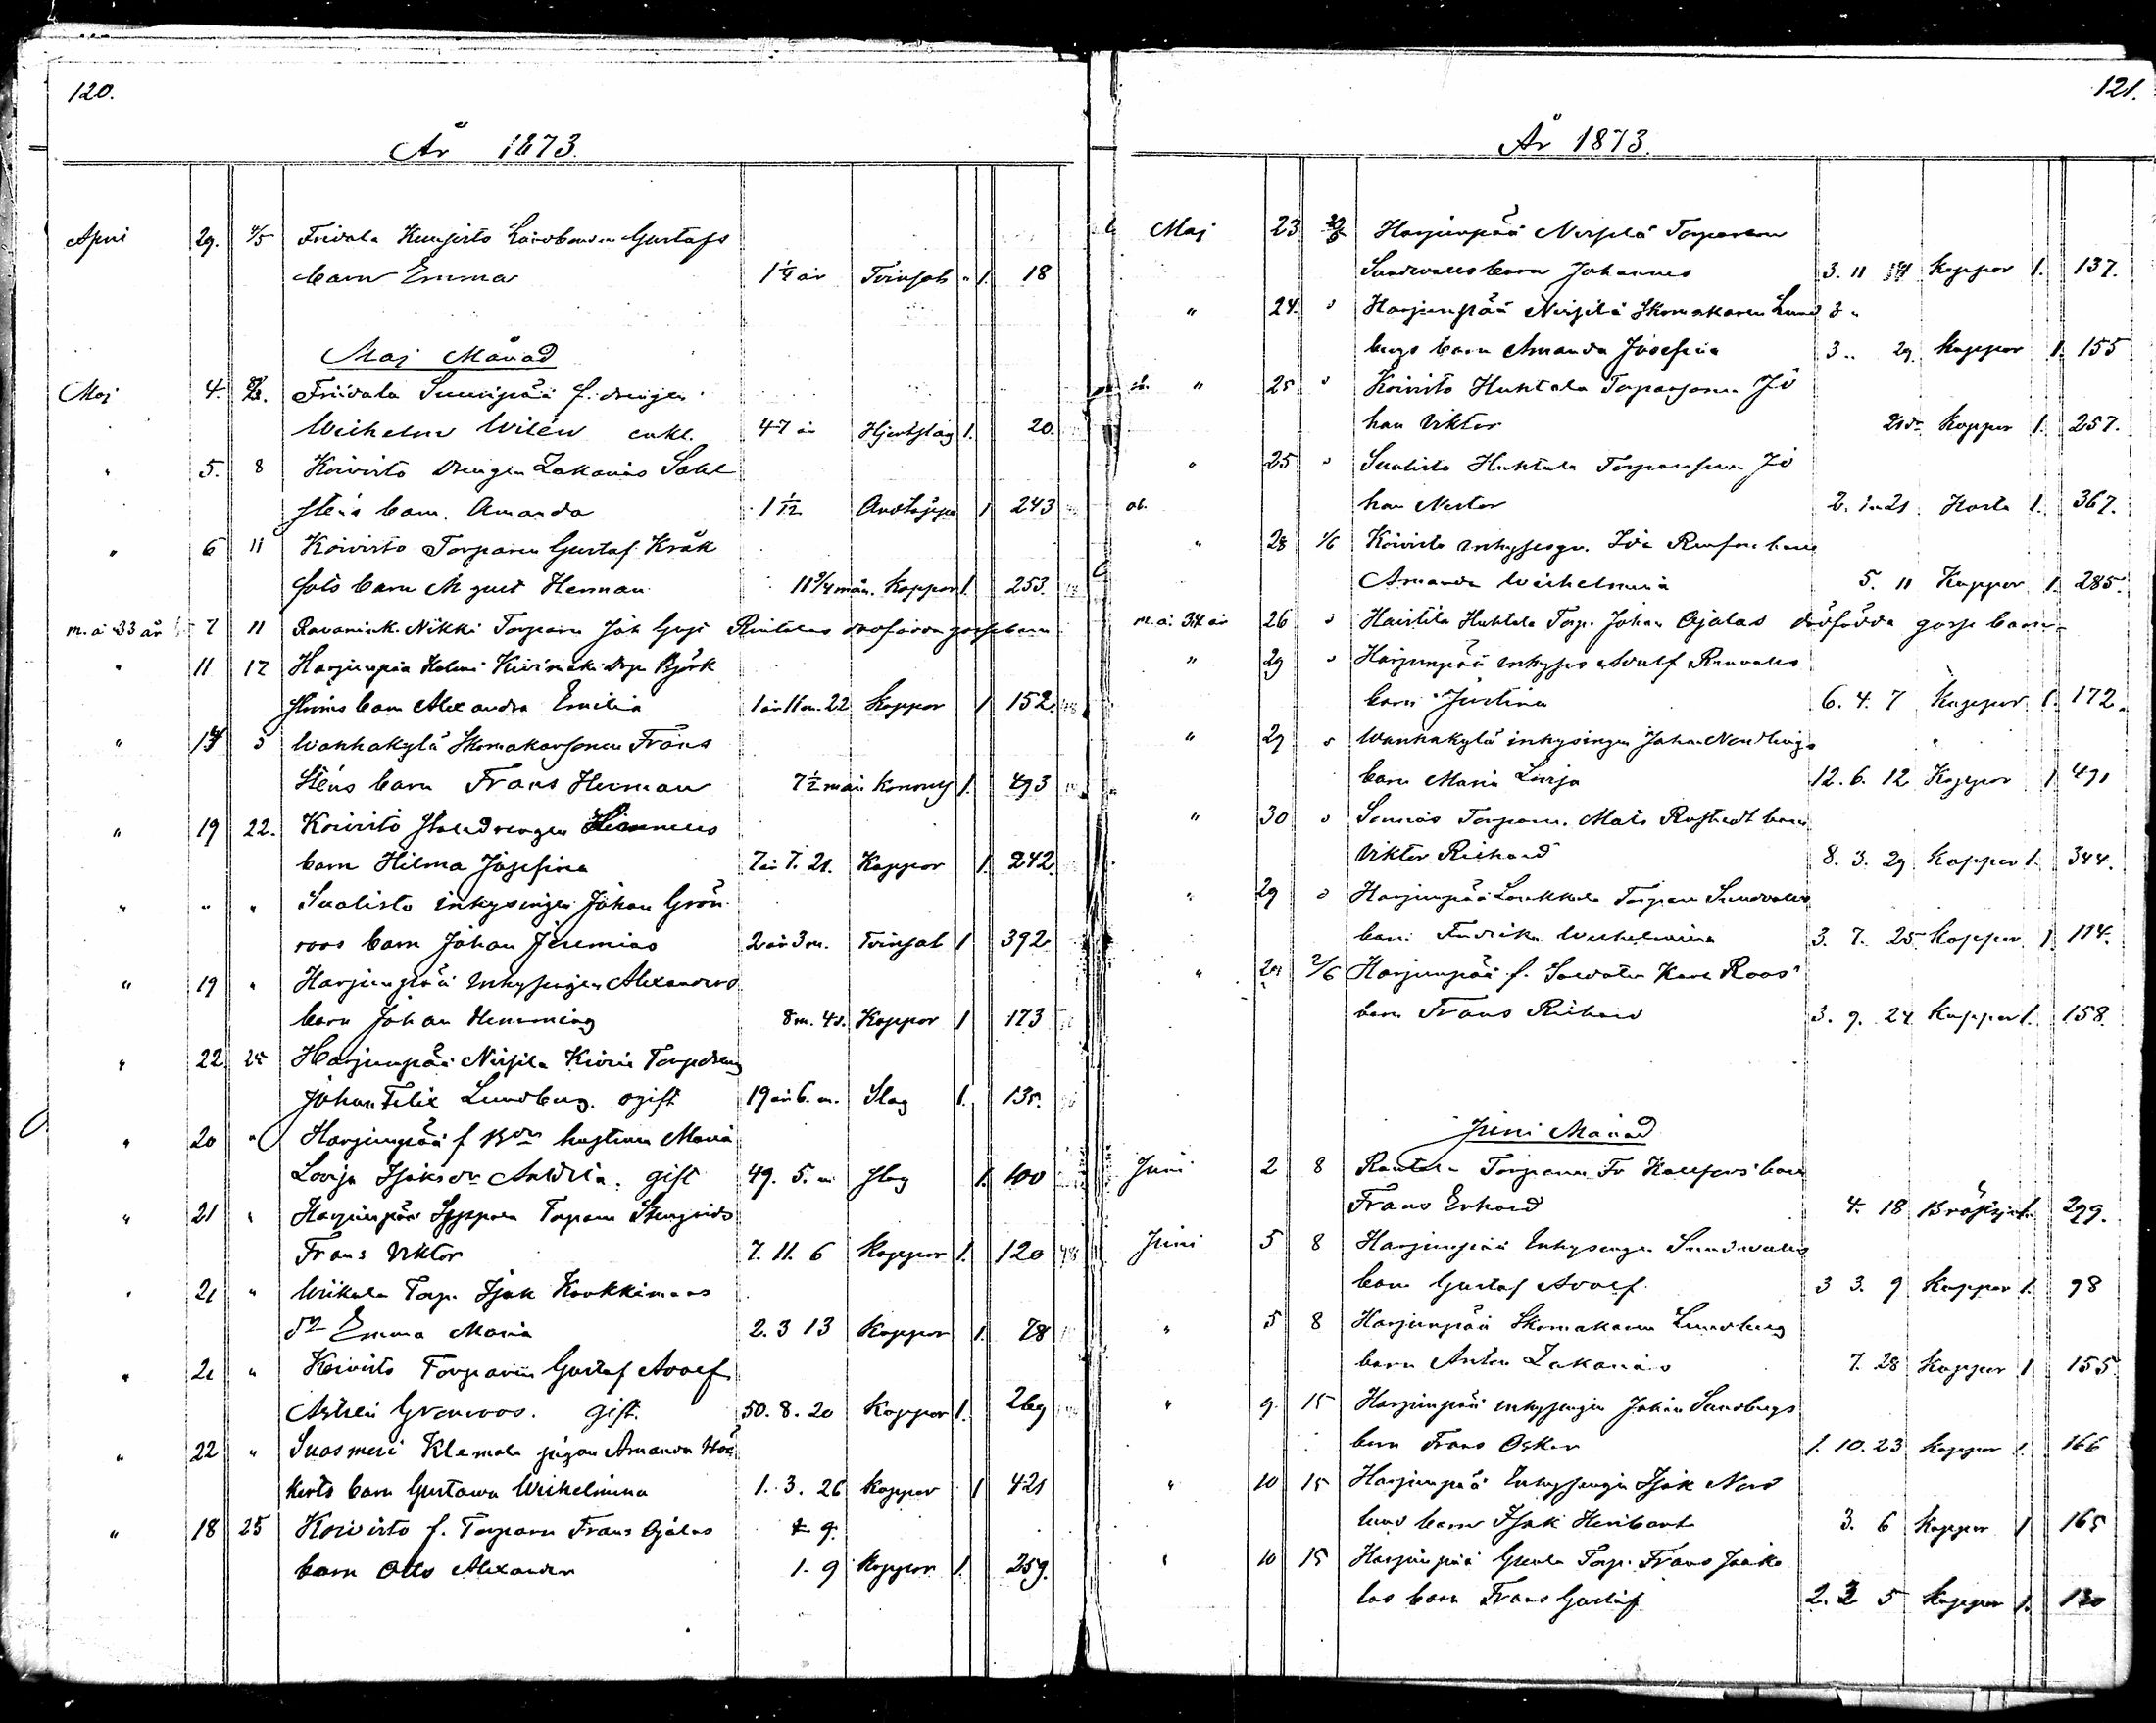 120.
År 1873.
April 29. 4/5 Fridala Landbonden Gustafs
barn Emma 1 1/4 år Tvinsot 1. 18
Maj Månad
Maj 4. Fridala f. drengen
Wilhelm Wilén enkl. 47 år Hjertslag 1. 20.
" 5. 8 Koivisto Drengen Zakarias Sahl
sténs barn Amanda 1 1/12 1 243
" 6 11 Koivisto Torparen Gustaf Kråk
fots barn August Herman 11 3/4 mån. Koppor 1. 253.
m. å 33 år 7 11 Ravanink. Nikki Torparen Joh Gust Rintalas dödfödda gossebarn
" 11 17 Harjunpää Holmi Kivimäki Björk
barn Alexandra Emilia 1 år 11 m. 22 Koppor 1 152.
" Wanhakylä Skomakarsonen Frans
Sténs barn Frans Herman 7 1/2 mån 1. 493
" 19 22. Koivisto
barn Hilma Josefina 7 år 7. 21. Koppor 1. 242.
" " " Suolisto inhysingen Johan Grön
roos barn Johan Jeremias 2 år 3 m. Tvinsot 1 392
" 19 " Harjunpää Inhysingen Alexanders
barn Johan Hemming 8 m. 4 d. Koppor 1 173
" 22 25 Harjunpää Nirjila Torpdreng
Johan Felix Lundberg. ogift 19 år 6. m. Slag 1. 135.
" 20 " Harjunpää f hustrun Maria
Lovisa Isaksdr gift 49. 5. m Slag 1. 100
" 21 " Harjunpää Torparen
Frans Viktor 7. 11. 6 Koppor 1. 120
" 21 " Wiikala Torp. Isak
dr Emma Maria 2. 3 13 Koppor 1. 78
" 21 " Koivisto Torparen Gustaf Adolf
Grönroos. gift. 50. 8. 20 Koppor 1. 269
" 22 " Suosmeri Klemola pigan Amanda
barn Gustava Wilhelmina 1. 3. 26 Koppor 1 421
" 18 25 Koivisto f. Torparen Frans Ojalas
barn Otto Alexander 1. 9 Koppor 1. 259.
121.
År 1873.
Maj 23 Harjunpää Nirjilä Torparen
Sundvalls barn Johannes 3. 11 Koppor 1. 137.
" 24. Harjunpää Nirjilä Skomakaren Lund
bergs barn Amanda Josefina 3 " 29 Koppor 1. 155
" 25 Koivisto Huhtala Torparsonen Jo
han Viktor Koppor 1. 257.
" 25 Suolisto Huhtala Torparsonen Jo
han Nestor 2. 21 Hosta 1. 367.
" 28 1/6 Koivisto Inhysesqv. Ida barn
Amanda Wilhelmina 5. 11 Koppor 1. 285.
m. å. 34 år 26 Haistila Huhtala Torp. Johan Ojalas dödfödda gosse barn
" 29 Harjunpää Inhyses Adolf
barn Justina 6. 4. 7 Koppor 1. 172.
" 29 Wanhakylä inhysingen Johan
barn Maria Lovisa 12. 6. 12 Koppor 1 491
" 30 Sonnäs Torparen Mats barn
Viktor Richard 8. 3. 29 Koppor 1. 344.
" 29 Harjunpää Loukkula Torparen Sundvalls
barn Fredrika Wilhelmina 3. 7. 25 Koppor 1 114.
" 2/6 Harjunpää f. Soldaten Karl Roos'
barn Frans Richard 3. 9. 24 Koppor 1. 158.
Juni Månad
Juni 2 8 Torparen Fr barn
Frans Erhard 4. 18 1. 299.
Juni 5 8 Harjunpää Inhysingen Sundvalls
barn Gustaf Adolf 3 3. 9 Koppor 1. 98
" 5 8 Harjunpää Skomakaren Lundberg
barn Anton Zakarias 7. 28 Koppor 1 155
" 9. 15 Harjunpää inhysingen Johan Sundbergs
barn Frans Oskar 1. 10. 23 Koppor 1. 166
" 10 15 Harjunpää Inhysingen Isak Nord
lund barn Isak Heribert 3. 6 Koppor 1 165
" 10 15 Harjunpää Torp. Frans Jaako
las barn Frans Gustaf 2. 2 5 Koppor 1. 130